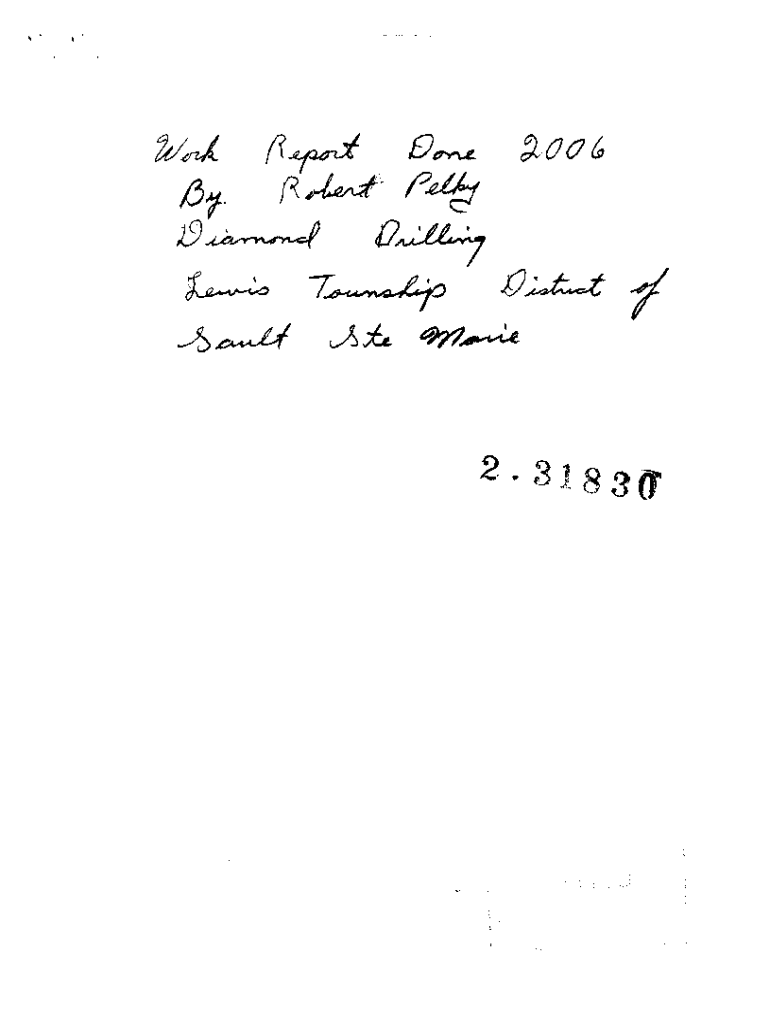 Work Report Done 2006
By. Robert Pelky
Diamond Drilling
Lewis Township District of
Sault Ste Marie
2.31830